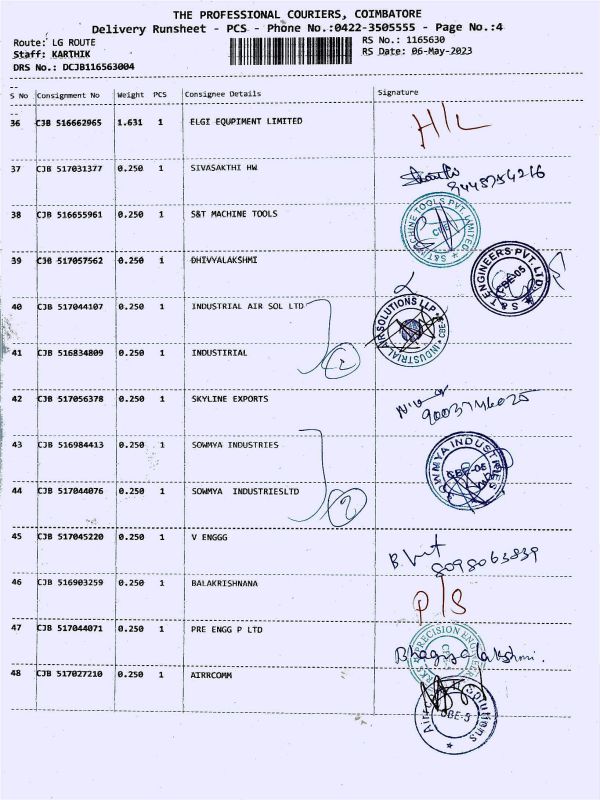 THE PROFESSIONAL COURIERS, COIMBATORE
Delivery Runsheet - PCS - Phone No.:0422-3505555 - Page No.:4
Route: LG ROUTE
RS No.: 1165630
Staff: KARTHIK
RS Date: 06-May-2023
DRS No.: DCJB116563004
S No Consignment No Weight PCS Consignee Details Signature
36 CJB 516662965 1.631 1 ELGI EQUPIMENT LIMITED H/L
37 CJB 517031377 0.250 1 SIVASAKTHI HW
38 CJB 516655961 0.250 1 S&T MACHINE TOOLS
S&T MACHINE TOOLS PVT. LIMITED CBE
39 CJB 517057562 0.250 1 DHIVYALAKSHMI
S&T ENGINEERS PVT. LTD. CBE-05
40 CJB 517044107 0.250 1 INDUSTRIAL AIR SOL LTD
INDUSTRIAL AIR SOLUTIONS LLP CBE
41 CJB 516834809 0.250 1 INDUSTIRIAL 2
42 CJB 517056378 0.250 1 SKYLINE EXPORTS
43 CJB 516984413 0.250 1 SOWMYA INDUSTRIES
SOWMYA INDUSTRIES CBE-06
44 CJB 517044076 0.250 1 SOWMYA INDUSTRIESLTD 2
45 CJB 517045220 0.250 1 V ENGGG
46 CJB 516903259 0.250 1 BALAKRISHNANA P/S
47 CJB 517044071 0.250 1 PRE ENGG P LTD
PRECISION ENGINEE
Bhagyalakshmi.
48 CJB 517027210 0.250 1 AIRRCOMM
Airrco Solutions CBE-5